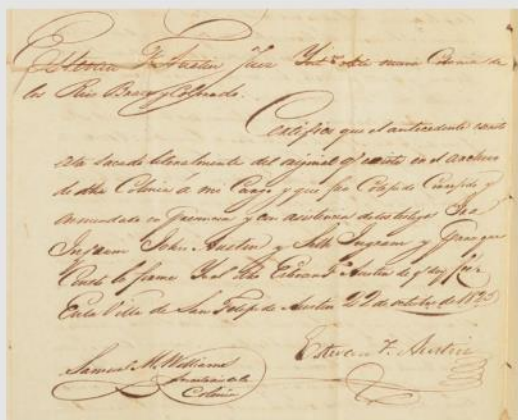 Estevan F. Austin Juez de la nueva Colonia de
los Rios Brazos y Colorado.
Certifico que el antecedente
esta sacado literalmente del original qe existe en el archivo
de dha Colonia á mi Cargo y que fue Cotejado Corregido y
enmendado en presencia y con asistencia de los testigos Ira
Ingram John Austin y Seth Ingram y para que
Conste lo firmo Yo el dho Estevan F. Austin de qe doy fee
En la Villa de San Felipe de Austin 22 de octubre de
Estevan F. Austin
Samuel M. Williams
Secretario de la
Colonia